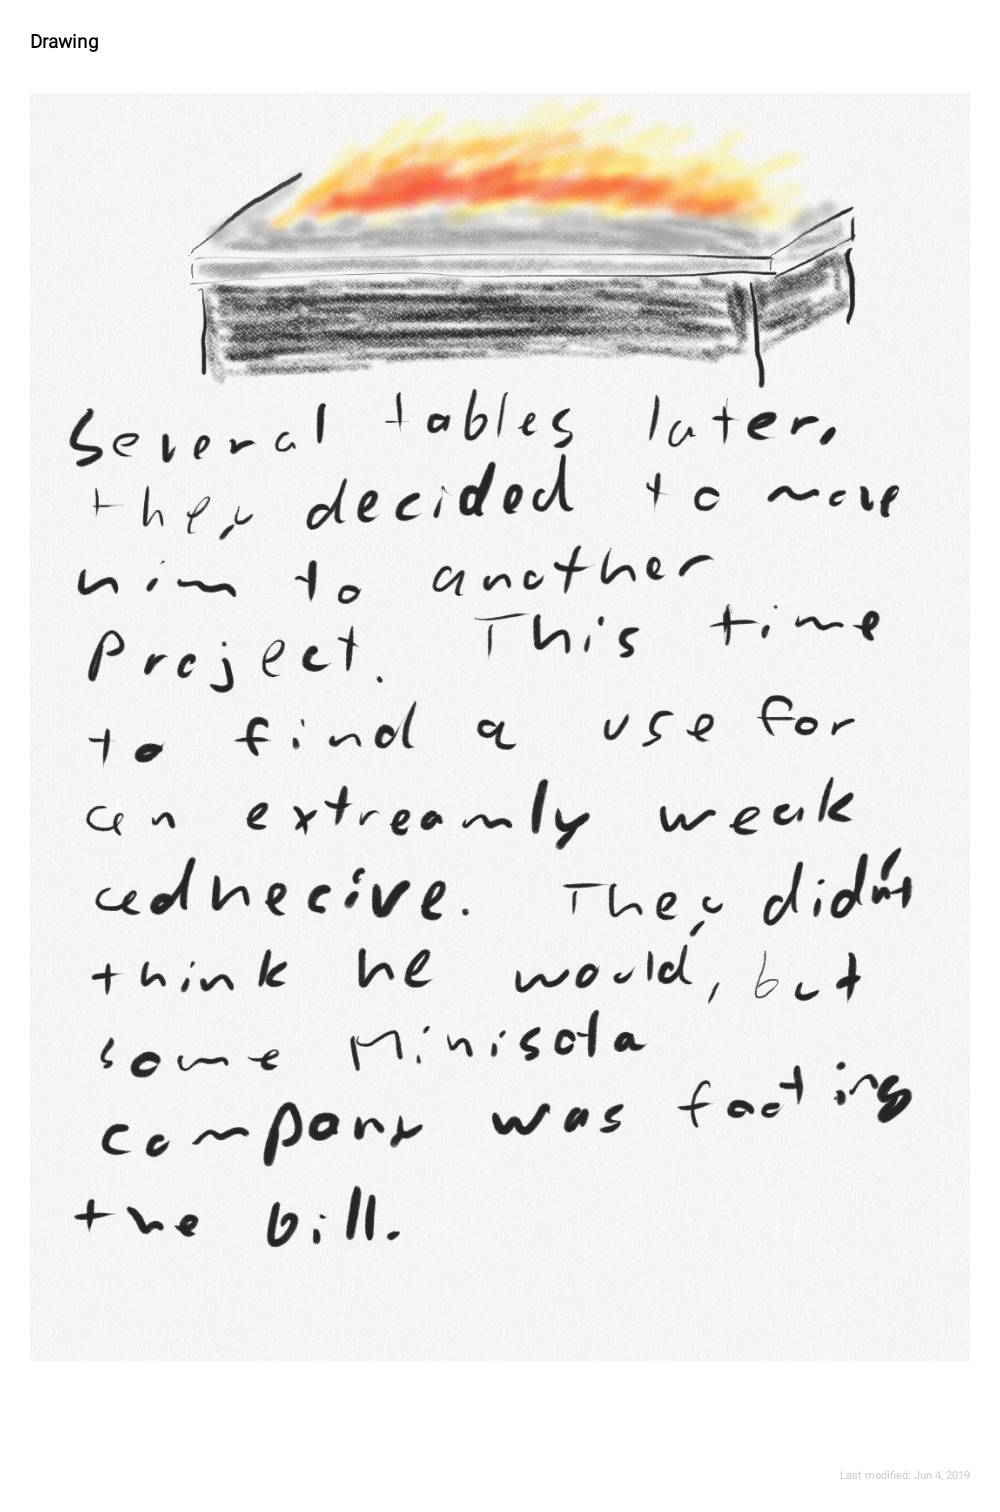 Drawing
Several tables later,
they decided to move
him to another
Project. This time
to find a use for
an extreamly weak
adhecive. They didn't
think he would, but
some Minisota
company was footing
the bill.
Last modified: Jun 4, 2019